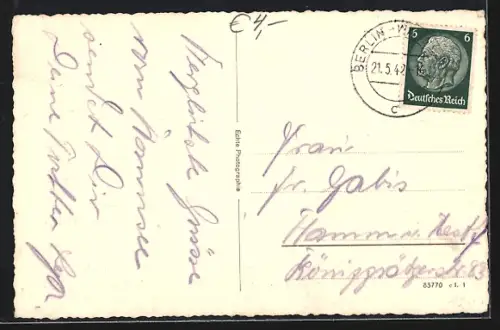 € 4,-
Herzliche Grüsse
vom Wannsee
sendet Dir
Deine Mutter
Echte Photographie
BERLIN-W
21.5.42
c
6 6
Deutsches Reich
Frau
Fr. Gabis
Hamm i. Westf.
Königgrätzerstr. 83
85770 c L 1